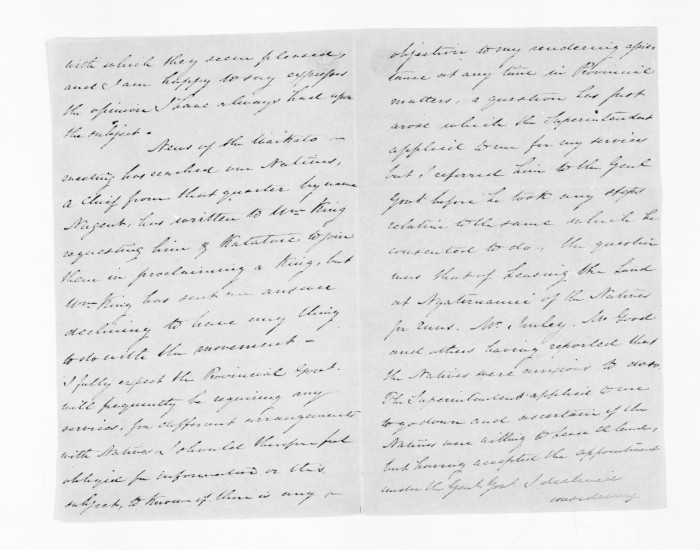 with which they seem pleased,
and I am happy to say expresses
the opinion I have always had upon
the subject.
News of the Waikato —
meeting has reached our Natives,
a Chief from that quarter by name
Nugent, has written to Wm King
requesting him & Katatore to join
them in proclaiming a King, but
Wm King has sent an answer
declining to have any thing
to do with the movement —
I fully expect the Provincial Govt.
will frequently be requiring my
services, for different arrangements
with Natives. I should therefore feel
obliged for information on this
subject, to know if there is any —
objection to my rendering assis
tance at any time in Provincial
matters, a question has just
arose which the Superintendent
applied to me for my services
but I referred him to the Genl
Govt before he took any steps
relative to the same which he
consented to do., the question
was that of Leasing the Land
at Ngatiruanui of the Natives
for runs. Mr Imlay. Mr Good
and others having reported that
the Natives were anxious to do so.
The Superintendent applied to me
to go down and ascertain if the
Natives were willing to lease the land,
but having accepted the appointment
under the Genl Govt I declined
considering